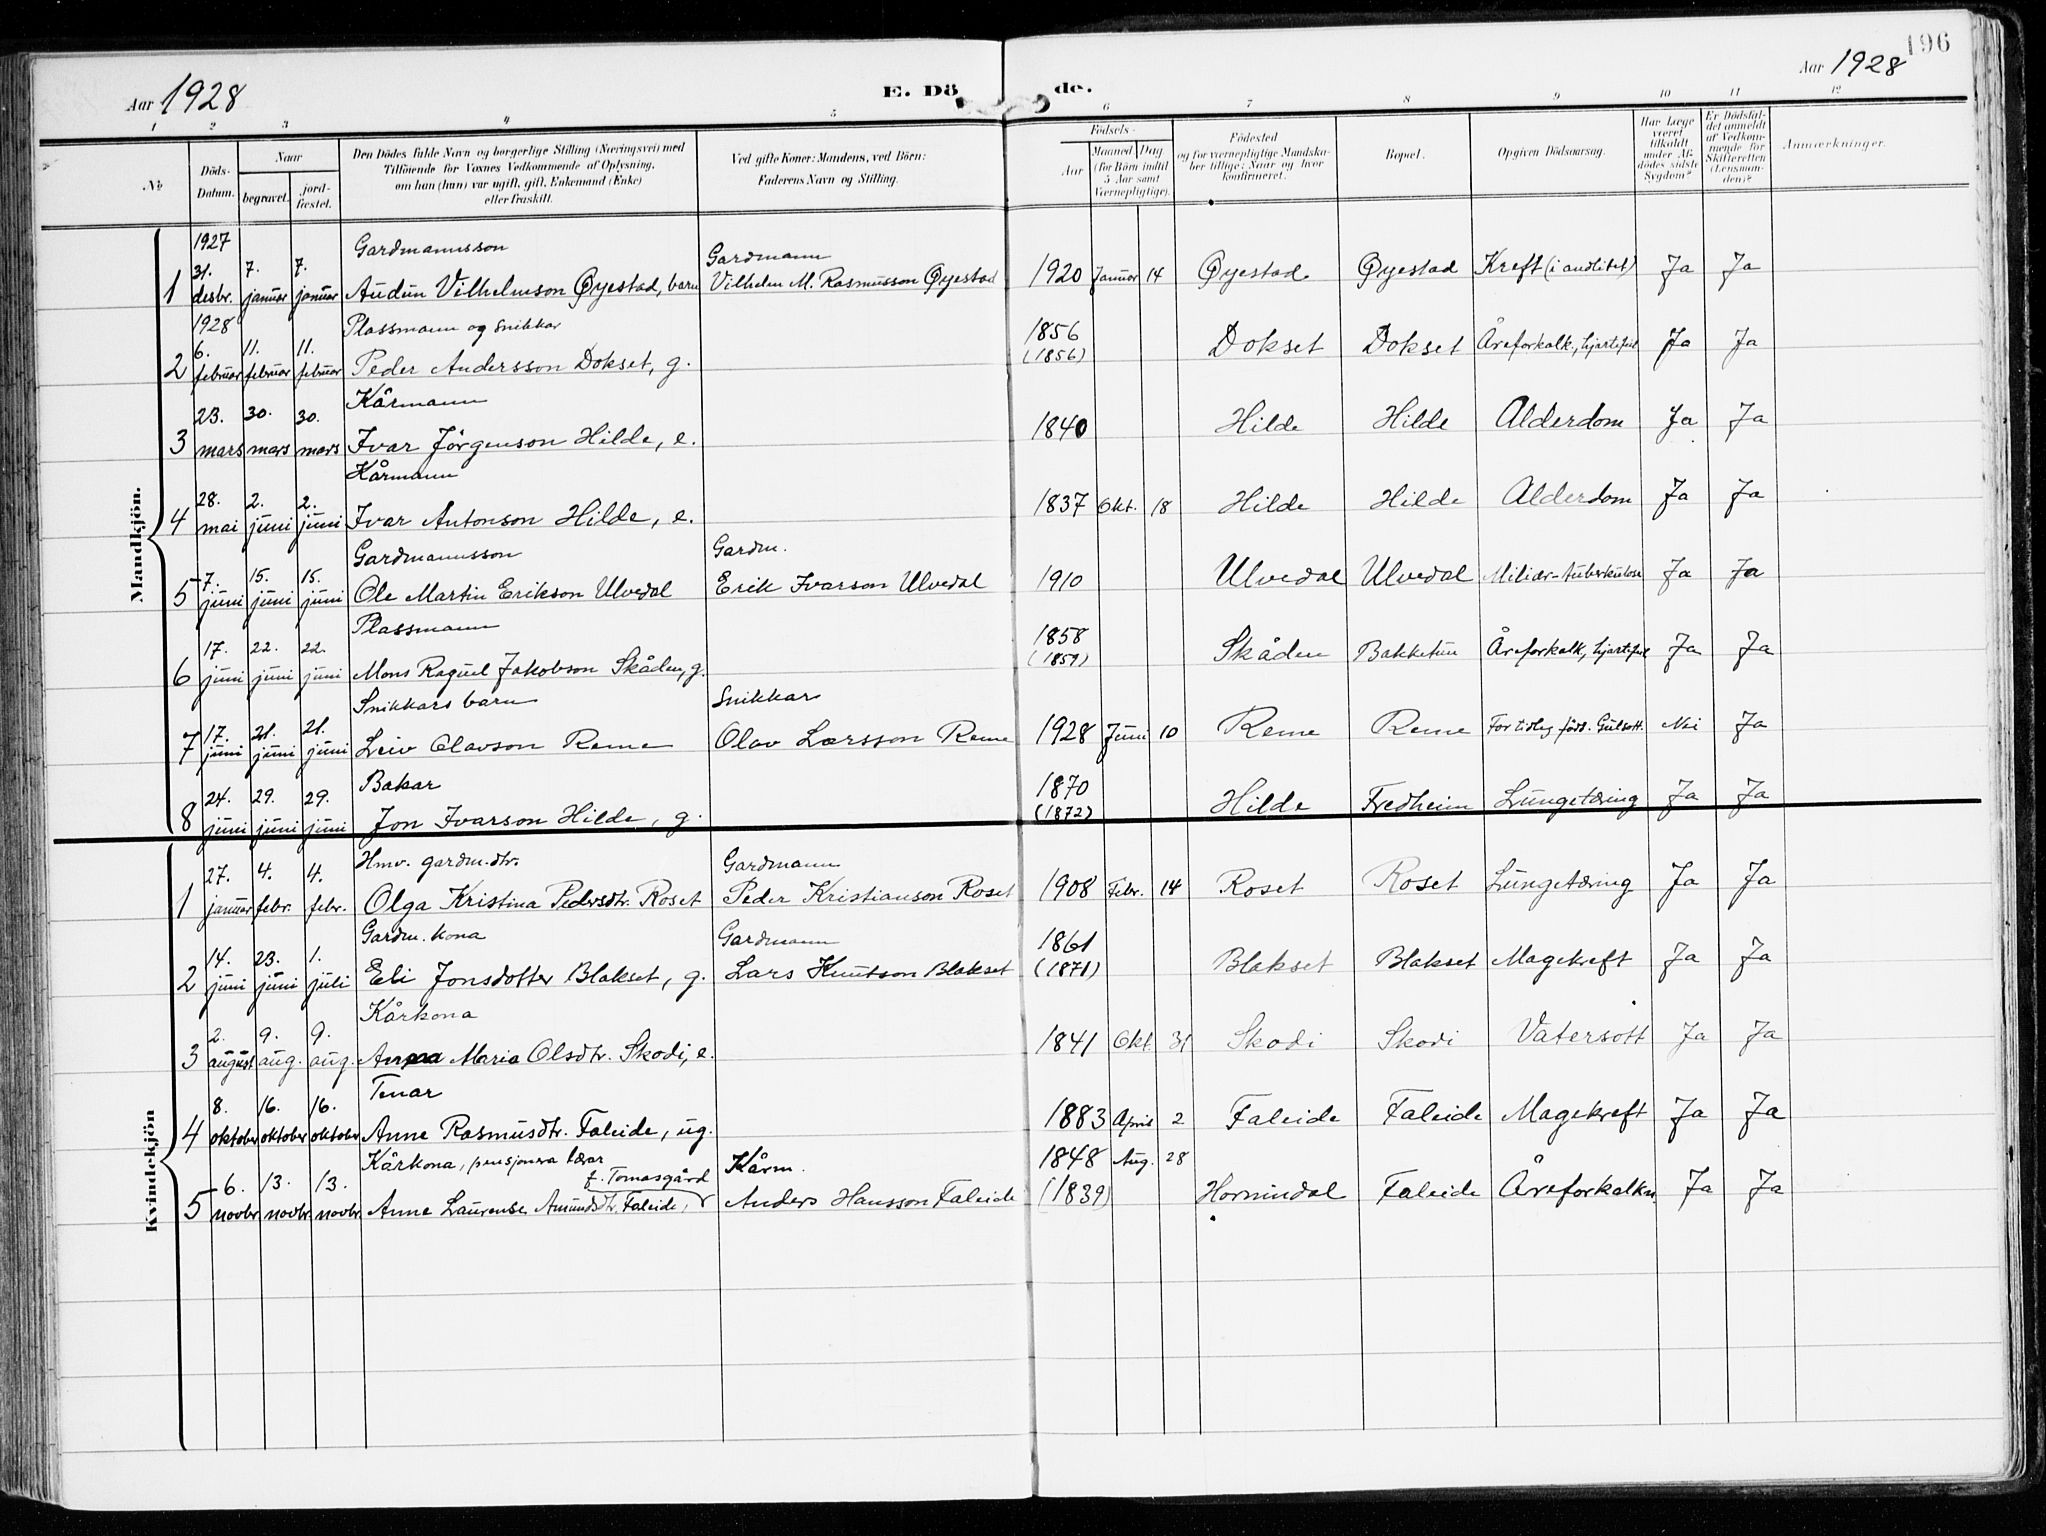 196
Aar 1928
E. Döde.
Aar 1928
1 2 3 4 5 6 7 8 9 10 11 12
№
Döds-Datum.
Naar
begravet.
jord-fæstet.
Den Dödes fulde Navn og borgerlige Stilling (Næringsvei) med
Tilföiende for Voxnes Vedkommende af Oplysning,
om han (hun) var ugift, gift, Enkemand (Enke)
eller fraskilt.
Ved gifte Koner: Mandens, ved Börn:
Faderens Navn og Stilling.
Födsels-
Aar
Maaned Dag
(for Börn indtil
5 Aar samt
Værnepligtige).
Födested
og for værnepligtige Mandska-
ber tillige: Naar og hvor
konfirmeret.
Bopæl.
Opgiven Dödsaarsag.
Har Læge
været
tilkaldt
under Af-
dödes sidste
Sygdom?
Er Dödsfal-
det anmeldt
af Vedkom-
mende for
Skifteretten
(Lensman-
den)?
Anmærkninger.
Mandkjön.
1927 Gardmannsson Gardmann
1 31. desbr. 7. januar 7. januar Audun Vilhelmson Øyestad, barn Vilhelm M. Rasmusson Øyestad 1920 Januar 14 Øyestad Øyestad Kreft (i andlitet) Ja Ja
1928 Plassmann og snikkar
2 6. februar 11. februar 11. februar Peder Andersson Dokset, g. 1856 (1856) Dokset Dokset Åreforkalk., hjartefeil Ja Ja
Kårmann
3 23. mars 30. mars 30. mars Ivar Jörgenson Hilde, e. 1840 Hilde Hilde Alderdom Ja Ja
Kårmann
4 28. mai 2. juni 2. juni Ivar Antonson Hilde, e. 1837 Okt. 18 Hilde Hilde Alderdom Ja Ja
Gardmannsson Gardm.
5 7. juni 15. juni 15. juni Ole Martin Erikson Ulvedal Erik Ivarson Ulvedal 1910 Ulvedal Ulvedal Miliær-tuberkulose Ja Ja
Plassmann
6 17. juni 22. juni 22. juni Mons Raguel Jakobson Skåden, g. 1858 (1859) Skåden Bakketun Åreforkalk, hjartefeil Ja Ja
Snikkars barn Snikkar
7 17. juni 21. juni 21. juni Leiv Olavson Reme Olav Larsson Reme 1928 Juni 10 Reme Reme For tidleg född. Gulsott. Nei Ja
Bakar
8 24. juni 29. juni 29. juni Jon Ivarson Hilde, g. 1870 (1872) Hilde Fredheim Lungetæring Ja Ja
Kvindekjön
Hmv. gardm.dtr. Gardmann
1 27. januar 4. febr. 4. febr. Olga Kristina Pedersdtr. Roset Peder Kristianson Roset 1908 Febr. 14 Roset Roset Lungetæring Ja Ja
Gardm. kona Gardmann
2 14. juni 23. juni 1. juli Eli Jonsdotter Blakset, g. Lars Knutson Blakset 1861 (1871) Blakset Blakset Magekreft Ja Ja
Kårkona
3 2. august 9. aug. 9. aug. Anna Maria Olsdtr. Skodi, e. 1841 Okt. 31 Skodi Skodi Vatersott Ja Ja
Tenar
4 8. oktober 16. oktober 16. oktober Anne Rasmusdtr. Faleide, ug. 1883 April 2 Faleide Faleide Magekreft Ja Ja
Kårkona, pensjonera lærar f. Tomasgård Kårm.
5 6. novbr 13. novbr. 13. novbr. Anne Laurense Amundsdtr. Faleide, Anders Hansson Faleide 1848 (1839) Aug. 28 Hornindal Faleide Åreforkalkn. Ja Ja